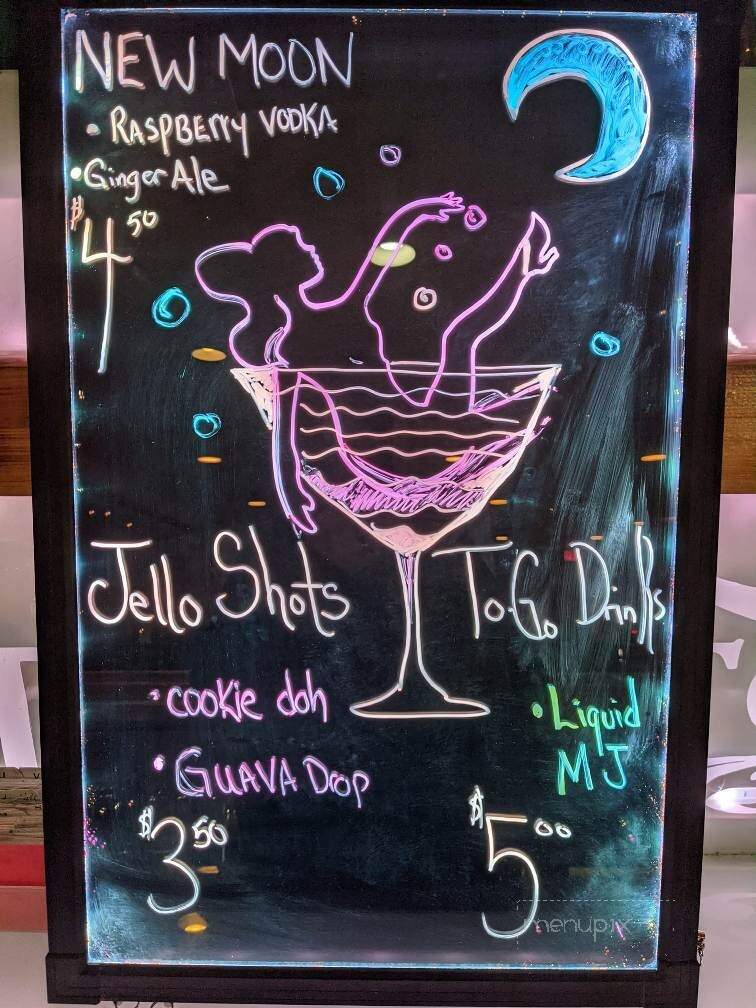 NEW MOON
• RASPBERRY VODKA
• Ginger Ale
$4 50
Jello Shots
• cookie doh
• GUAVA Drop
$3 50
To Go Drinks
• Liquid
MJ
$5 00
menupix